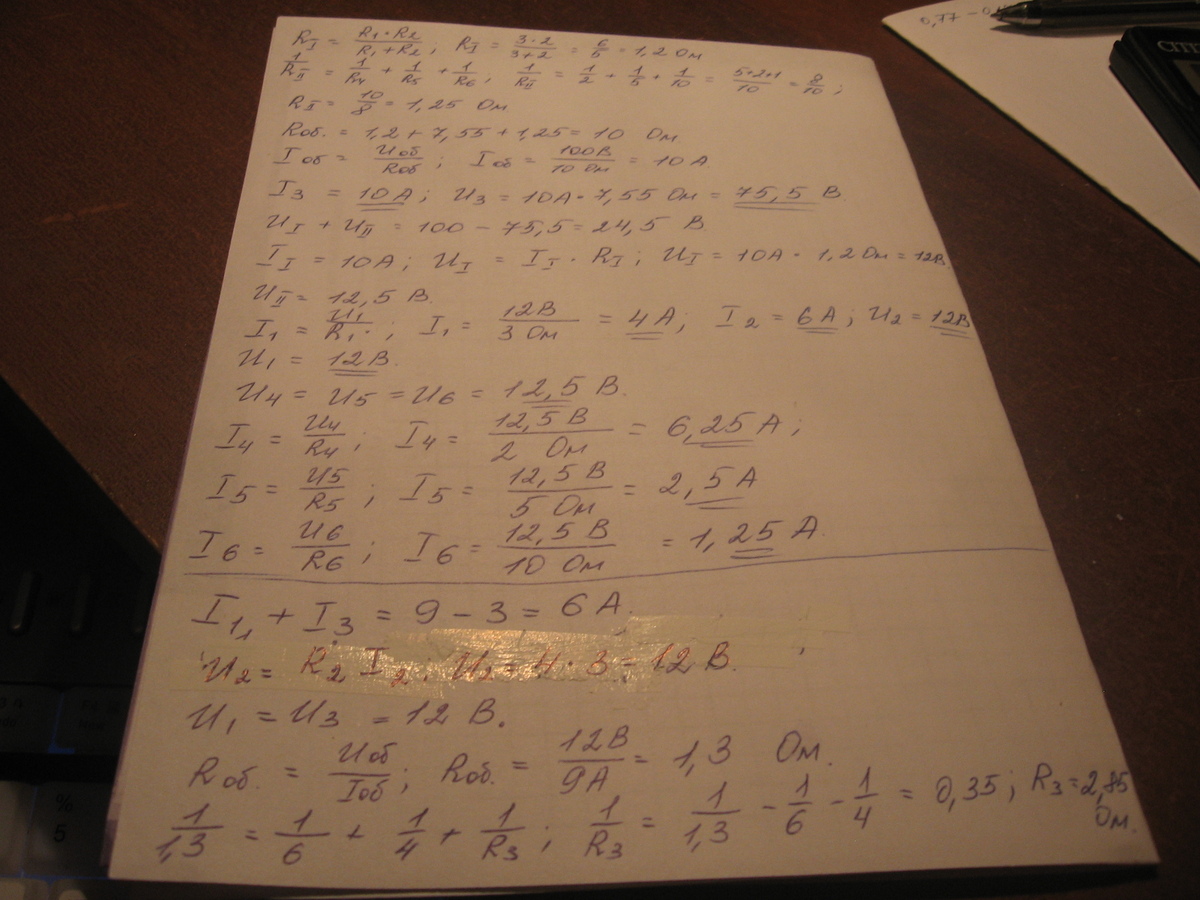 0,77 - 0,
R_I = R₁ · R₂ / R₁ + R₂; R_I = 3·2 / 3+2 = 6/5 = 1,2 Ом
1/R_II = 1/R₄ + 1/R₅ + 1/R₆; 1/R_II = 1/2 + 1/5 + 1/10 = 5+2+1 / 10 = 8/10;
R_II = 10/8 = 1,25 Ом
Rоб. = 1,2 + 7,55 + 1,25 = 10 Ом
Iоб = Uоб / Rоб; Iоб = 100В / 10 Ом = 10 А.
I₃ = 10А; U₃ = 10А · 7,55 Ом = 75,5 В.
U_I + U_II = 100 - 75,5 = 24,5 В.
I_I = 10А; U_I = I_I · R_I; U_I = 10А · 1,2 Ом = 12В.
U_II = 12,5 В.
I₁ = U₁ / R₁; I₁ = 12В / 3 Ом = 4А; I₂ = 6А; U₂ = 12В
U₁ = 12В.
U₄ = U₅ = U₆ = 12,5 В.
I₄ = U₄ / R₄; I₄ = 12,5 В / 2 Ом = 6,25 А;
I₅ = U₅ / R₅; I₅ = 12,5 В / 5 Ом = 2,5 А
I₆ = U₆ / R₆; I₆ = 12,5 В / 10 Ом = 1,25 А.
I₁, + I₃ = 9 - 3 = 6 А.
U₂ = R₂ I₂; U₂ = 4 · 3 = 12 В.
U₁ = U₃ = 12 В.
Rоб. = Uоб / Iоб; Rоб. = 12В / 9А = 1,3 Ом.
1/1,3 = 1/6 + 1/4 + 1/R₃; 1/R₃ = 1/1,3 - 1/6 - 1/4 = 0,35; R₃ = 2,85 Ом.
%
5